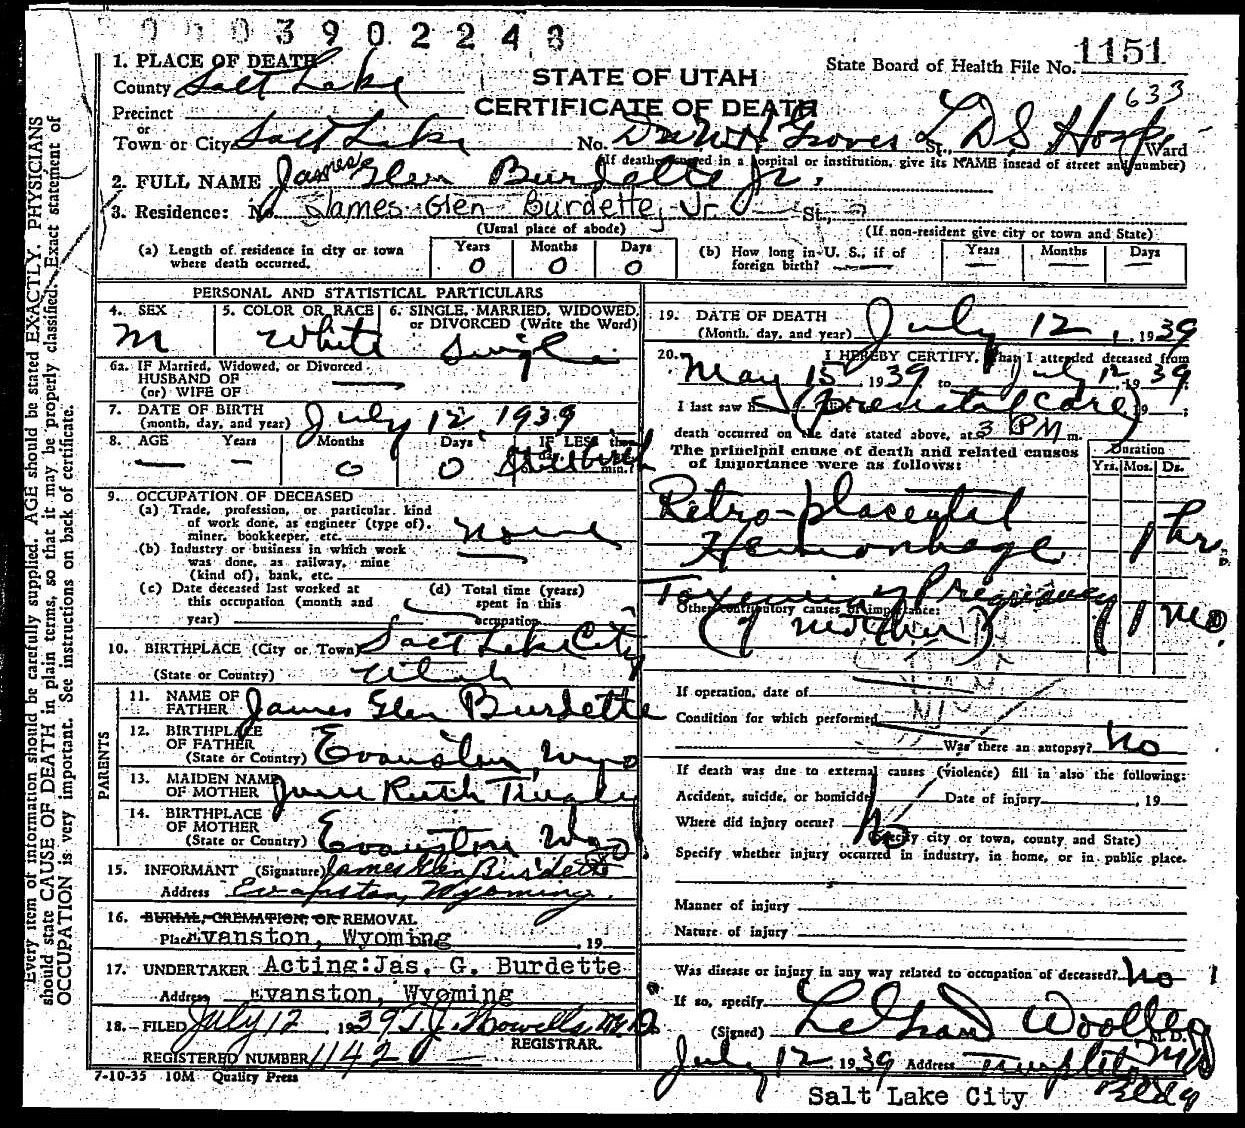 0003902243
1151
1. PLACE OF DEATH
STATE OF UTAH
State Board of Health File No. 1151
County Salt Lake
CERTIFICATE OF DEATH
633
Precinct
or
Town or City Salt Lake No. Dr W H Groves L D S Hosp St., Ward
(If death occurred in a hospital or institution, give its NAME insead of street and number)
2. FULL NAME James Glen Burdette Jr.
3. Residence: No. James Glen Burdette, Jr St.,
(Usual place of abode) (If non-resident give city or town and State)
(a) Length of residence in city or town where death occurred. Years 0 Months 0 Days 0
(b) How long in U. S., if of foreign birth? — Years — Months — Days —
PERSONAL AND STATISTICAL PARTICULARS
4. SEX M
5. COLOR OR RACE White
6. SINGLE, MARRIED, WIDOWED, or DIVORCED (Write the Word) Single
6a. IF Married, Widowed, or Divorced
HUSBAND OF
(or) WIFE OF
7. DATE OF BIRTH
(month, day, and year) July 12, 1939
8. AGE Years Months Days IF LESS than
— — 0 0 Stillbirth
min.?
9. OCCUPATION OF DECEASED
(a) Trade, profession, or particular kind
of work done, as engineer (type of),
miner, bookkeeper, etc. none
(b) Industry or business in which work
was done, as railway, mine
(kind of), bank, etc.
(c) Date deceased last worked at
this occupation (month and
year)
(d) Total time (years)
spent in this
occupation
10. BIRTHPLACE (City or Town) Salt Lake City
(State or Country) Utah
PARENTS
11. NAME OF FATHER James Glen Burdette
12. BIRTHPLACE OF FATHER
(State or Country) Evanston, Wyo
13. MAIDEN NAME OF MOTHER June Ruth Tingly
14. BIRTHPLACE OF MOTHER
(State or Country) Evanston Wyo
15. INFORMANT (Signature) James Glen Burdette
Address Evanston, Wyoming.
16. BURIAL, CREMATION, OR REMOVAL
Place Evanston, Wyoming , 19
17. UNDERTAKER Acting: Jas. G. Burdette
Address Evanston, Wyoming
18. FILED July 12, 1939 T.J. Howells, M.D.
REGISTRAR.
REGISTERED NUMBER 1142
7-10-35 10M Quality Press
19. DATE OF DEATH
(Month, day, and year) July 12, 1939
20. I HEREBY CERTIFY, That I attended deceased from
May 15, 1939 to July 12, 1939
I last saw h (prenatal care) 19 ;
death occurred on the date stated above, at 3 PM m.
The principal cause of death and related causes
of importance were as follows:
Duration
Yrs. Mos. Ds.
Retro-placental
Hemorrhage 1 hr.
Toxemia of Pregnancy
Other contributory causes of importance:
(of mother) 1 mo.
If operation, date of
Condition for which performed
Was there an autopsy? No
If death was due to external causes (violence) fill in also the following:
Accident, suicide, or homicide Date of injury , 19
Where did injury occur? No
(Specify city or town, county and State)
Specify whether injury occurred in industry, in home, or in public place.
Manner of injury
Nature of injury
Was disease or injury in any way related to occupation of deceased? No
If so, specify
(Signed) LeGrand Woolley M. D.
July 12, 1939 Address Templeton Bldg
Salt Lake City
Every item of information should be carefully supplied. AGE should be stated EXACTLY. PHYSICIANS
should state CAUSE OF DEATH in plain terms, so that it may be properly classified. Exact statement of
OCCUPATION is very important. See instructions on back of certificate.